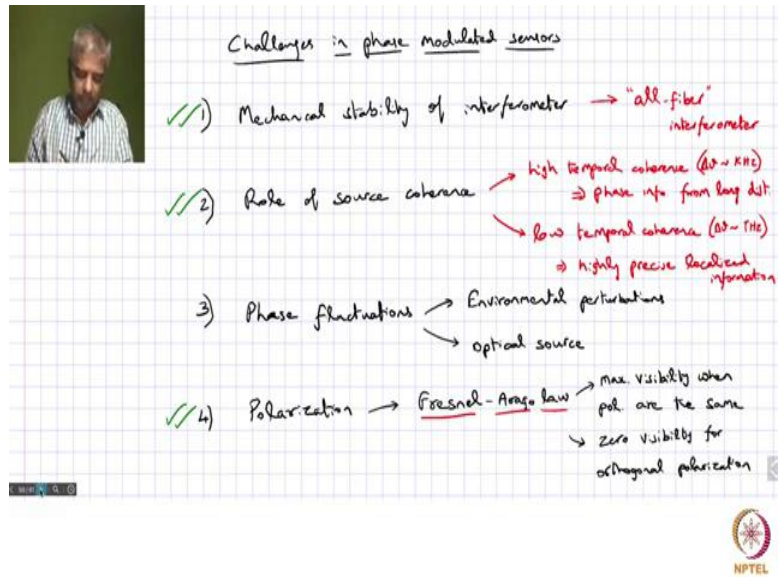 Challenges in phase modulated sensors
1) Mechanical stability of interferometer → "all-fiber"
interferometer
2) Role of source coherence
high temporal coherence (Δϑ ~ KHz)
⇒ phase info from long dist.
low temporal coherence (Δϑ ~ THz)
⇒ highly precise localized
information
3) Phase fluctuations
→ Environmental perturbations
→ optical source
4) Polarization → Fresnel-Arago law
→ Max. visibility when
pol. are the same
→ zero visibility for
orthogonal polarization
NPTEL